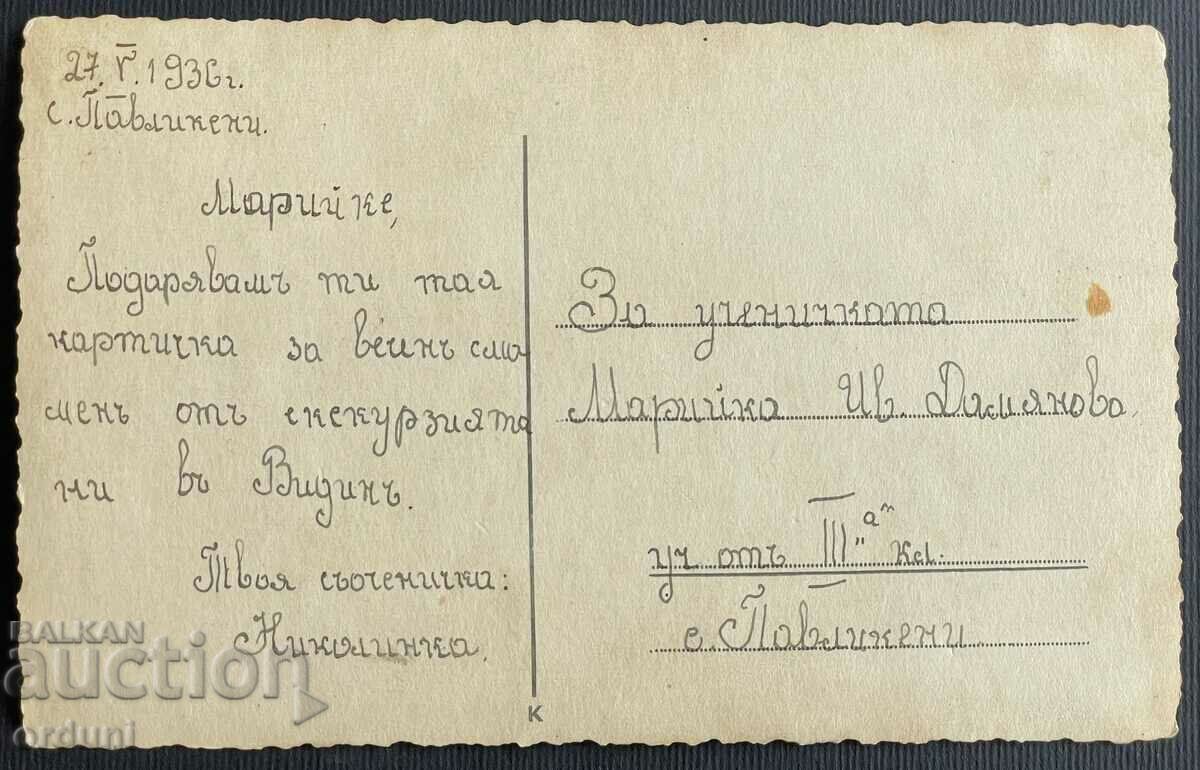 27. V. 1936 г.
с. Павликени.
Марийке,
Подарявамъ ти тая
картичка за вечинъ спо
менъ отъ екскурзията
ни въ Видинъ.
Твоя съоченичка:
Николинка.
За ученичката
Марийка Ив. Дамянова.
уч отъ III "а" кл.
с. Павликени
K
BALKAN
auction
orduni